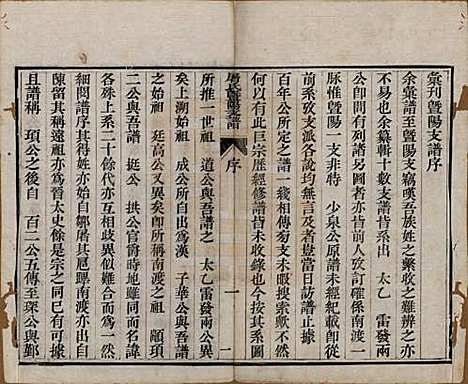 彙刊暨陽支譜序
余彙譜至暨陽支竊嘆吾族姓之繁收之難辨之亦
不易也余纂輯十數支譜皆系出　太乙　雷發兩
公卽間有列譜另圖者亦由前人攷訂之確係南渡一
脈惟暨陽一支非特　少泉公原譜未經紀載卽從
前系攷支派各說均無言及者豈當日訪譜止據
百年公所定之譜一綫相傳勿支未暇搜索歟不然
何以有此巨宗歷經修譜皆未收錄也今按其系圖
序
一
所推一世祖　道公與吾譜之　太乙雷發兩公異
矣上溯始祖　成公所自出爲漢　子華公與吾譜
之始祖　廷高公又異矣卽所稱南渡之祖　顒頊
二公與吾譜　挺公　拱公官爵時地雖同而名諱
各殊上系二十餘代亦均歧異似難合而爲一然
細閱譜序其得姓亦始自鄒屠其卮蹕南渡亦出自
陳留其稱遠祖亦爲晉太史餘是宗之同已有可據
且譜稱　頊公之後自　百二公五傳至琛公與鄞